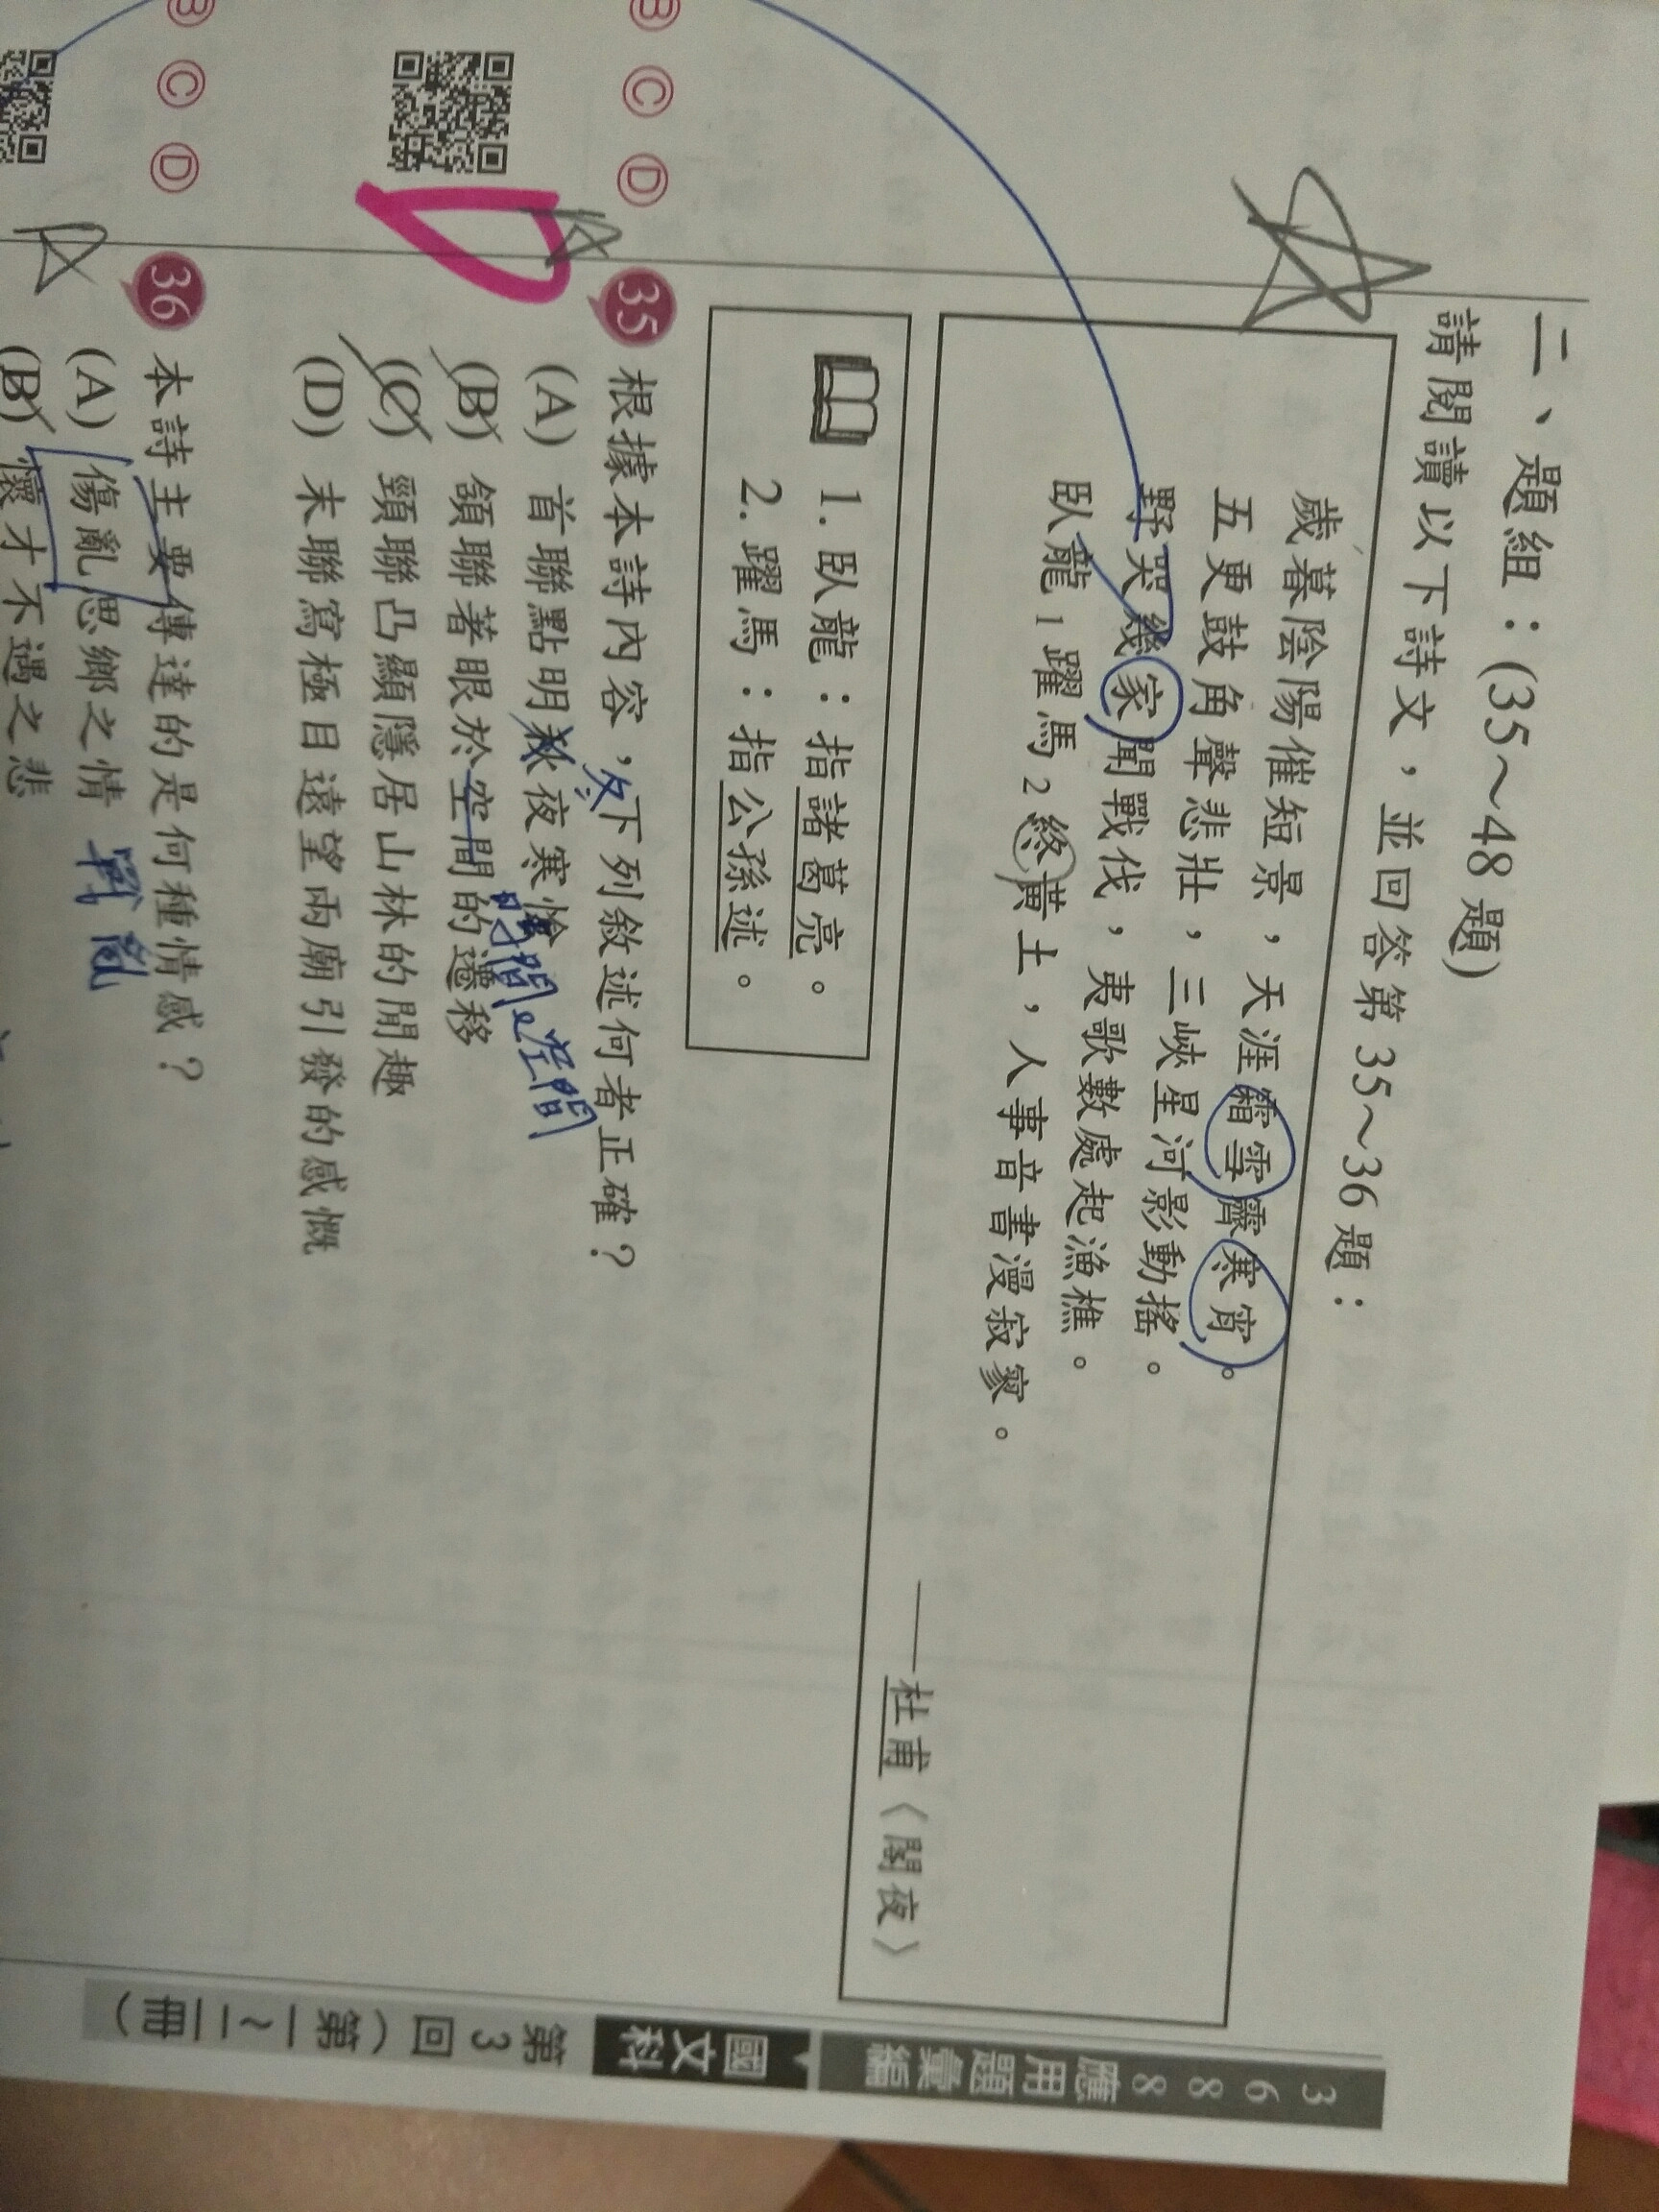 二、題組：(35～48 題)
請閱讀以下詩文，並回答第 35～36 題：
歲暮陰陽催短景，天涯霜雪霽寒宵。
五更鼓角聲悲壯，三峽星河影動搖。
野哭幾家聞戰伐，夷歌數處起漁樵。
臥龍1躍馬2終黃土，人事音書漫寂寥。
——杜甫〈閣夜〉
1. 臥龍：指諸葛亮。
2. 躍馬：指公孫述。
B C D
35 根據本詩內容，下列敘述何者正確？
冬
(A) 首聯點明秋夜寒愴
時間 空間
(B) 頷聯著眼於空間的遷移
(C) 頸聯凸顯隱居山林的閒趣
(D) 末聯寫極目遠望兩廟引發的感慨
B C D
36 本詩主要傳達的是何種情感？
(A) 傷亂思鄉之情
戰亂
(B) 懷才不遇之悲
3688應用題彙編
國文科
第3回（第一～二冊）